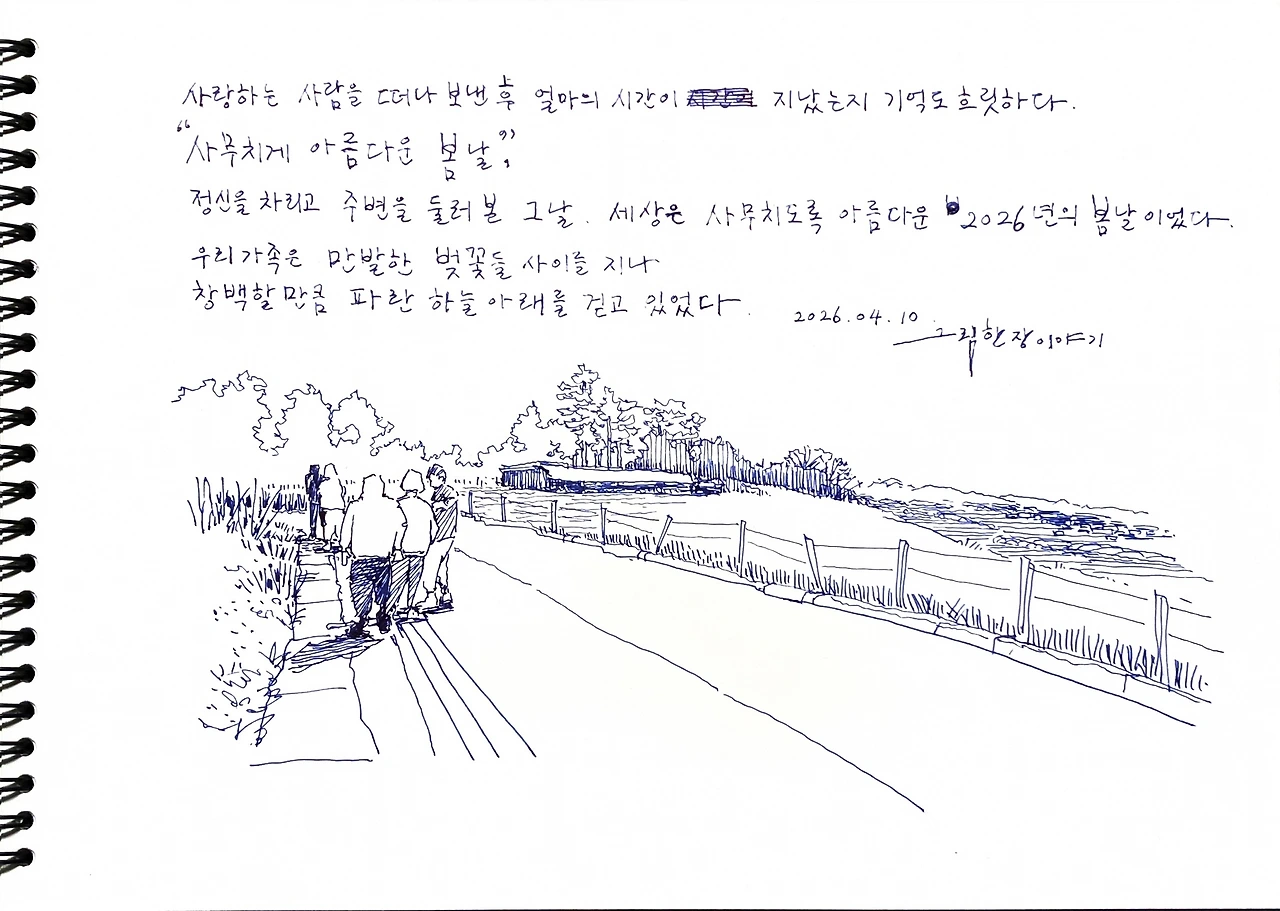 사랑하는 사람을 떠나 보낸 후 얼마의 시간이 지났는지 기억도 흐릿하다.
"사무치게 아름다운 봄날",
정신을 차리고 주변을 둘러 본 그날. 세상은 사무치도록 아름다운 2026년의 봄날이었다.
우리가족은 만발한 벚꽃들 사이를 지나
창백할만큼 파란 하늘 아래를 걷고 있었다.
2026.04.10.
그림한장이야기